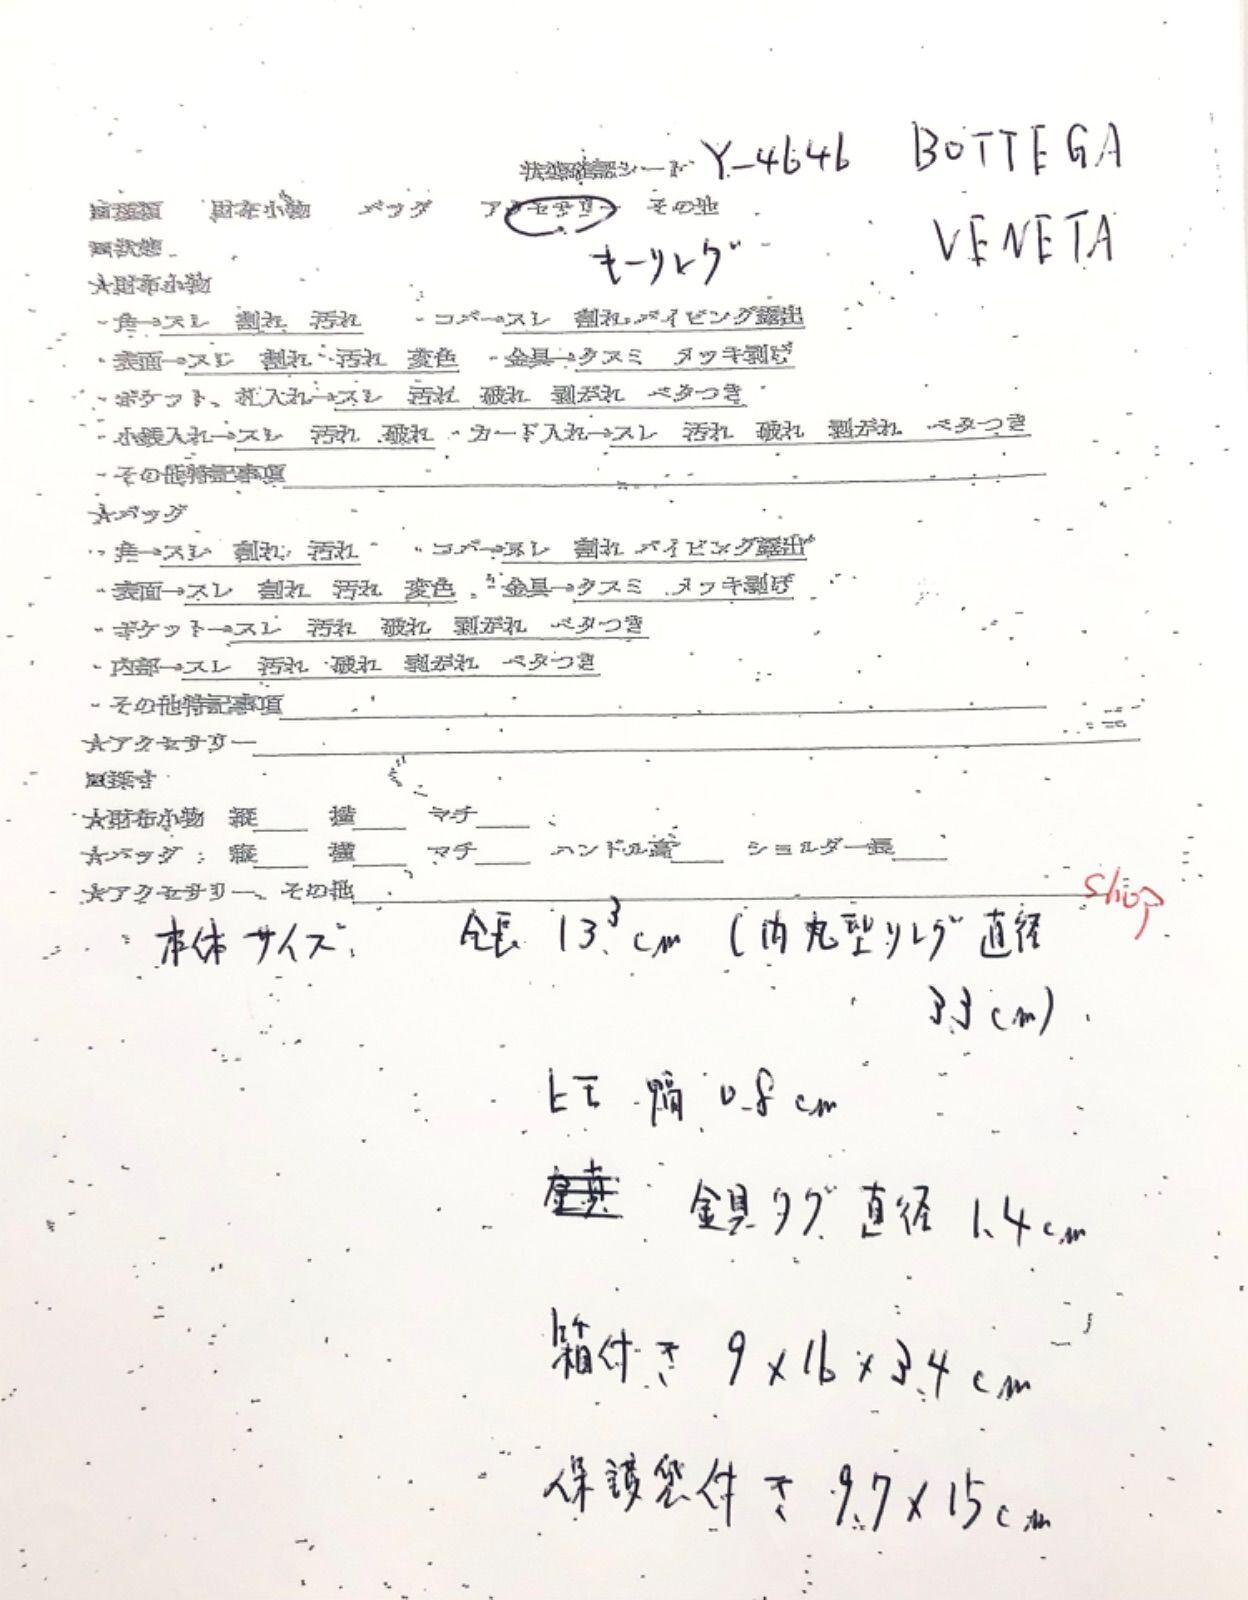 状態確認シート Y-4646 BOTTEGA
■種類 財布小物 バッグ アクセサリー その他
VENETA
■状態
キーリング
★財布小物
・角→スレ 割れ 汚れ ・コバ→スレ 割れ パイピング露出
・表面→スレ 割れ 汚れ 変色 ・金具→クスミ メッキ剥げ
・ポケット、札入れ→スレ 汚れ 破れ 剥がれ ベタつき
・小銭入れ→スレ 汚れ 破れ ・カード入れ→スレ 汚れ 破れ 剥がれ ベタつき
・その他特記事項
★バッグ
・角→スレ 割れ 汚れ ・コバ→スレ 割れ パイピング露出
・表面→スレ 割れ 汚れ 変色 ・金具→クスミ メッキ剥げ
・ポケット→スレ 汚れ 破れ 剥がれ ベタつき
・内部→スレ 汚れ 破れ 剥がれ ベタつき
・その他特記事項
★アクセサリー
■採寸
★財布小物 縦 横 マチ
★バッグ: 縦 横 マチ ハンドル高 ショルダー長
★アクセサリー、その他
shop
本体サイズ 全長 13.3cm (内丸型リング直径
3.3cm)
ヒモ 幅 0.8cm
金具タグ 直径 1.4cm
箱付き 9×16×3.4cm
保護袋付き 9.7×15cm